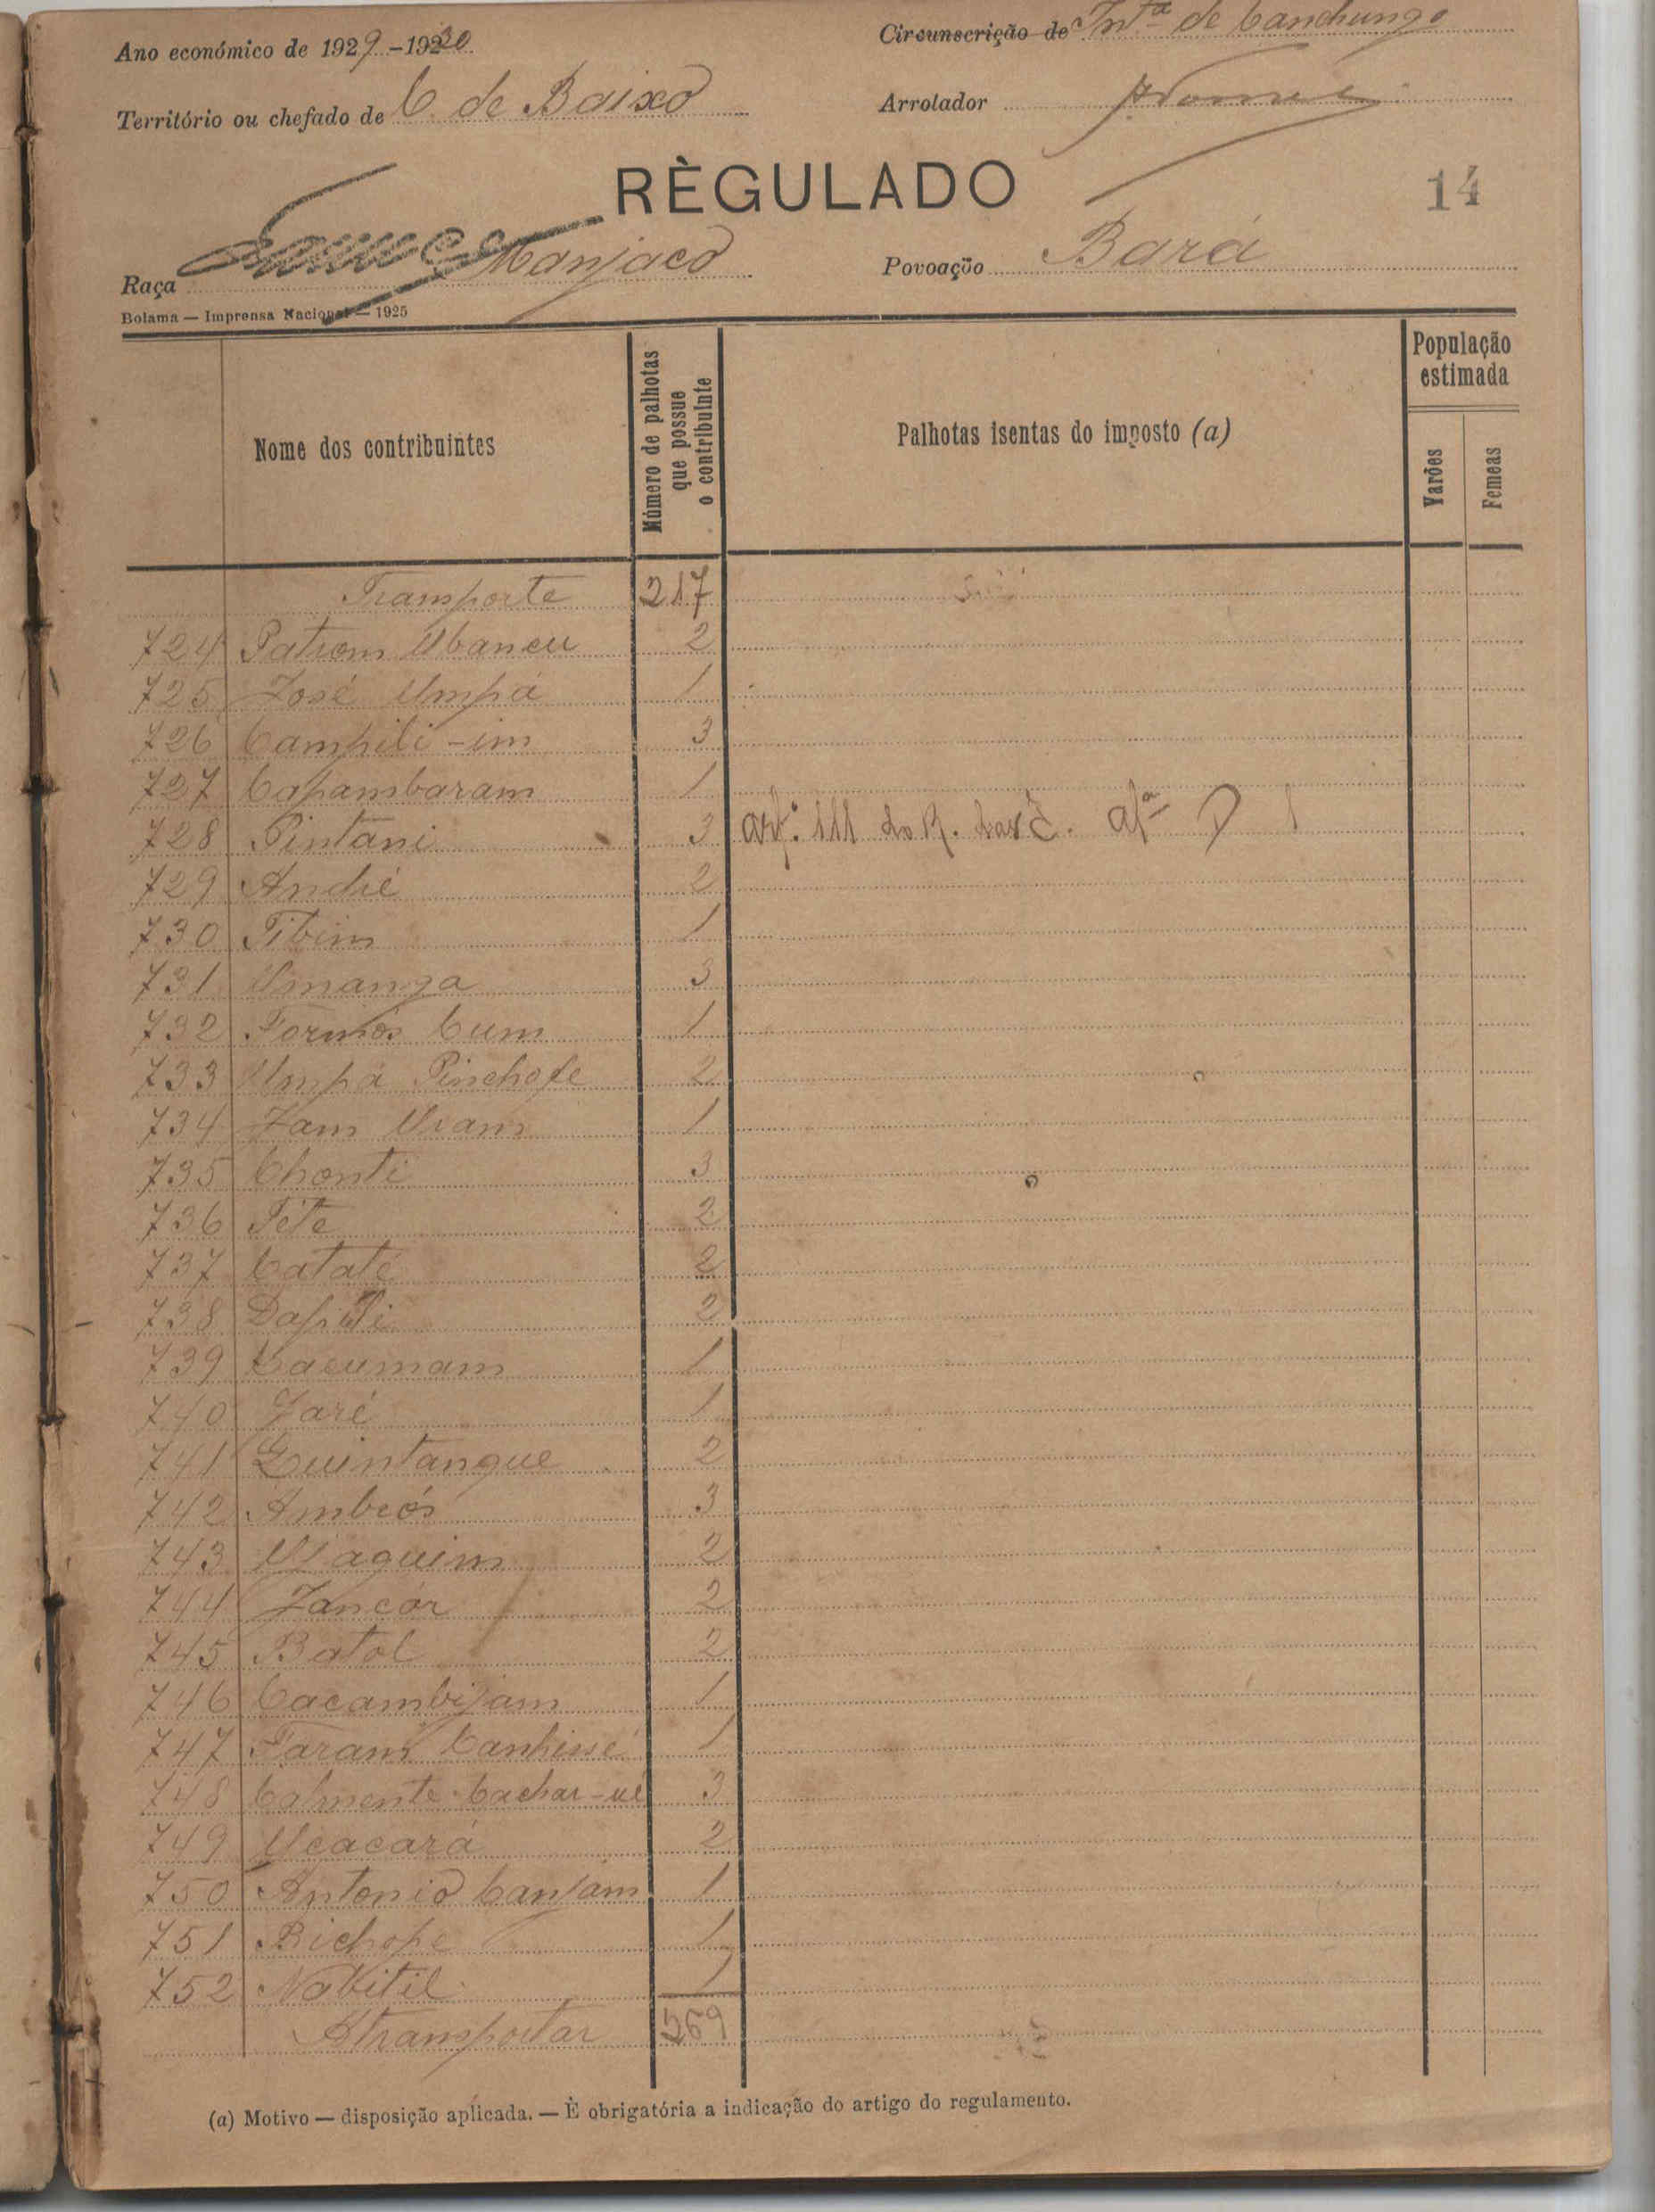 Ano económico de 1929-1930
Circunscrição de Int.ª de Canchungo
Território ou chefado de C. de Baixo
Arrolador
RÈGULADO
14
Raça Manjaco
Povoação Bará
Bolama — Imprensa Nacional — 1925
Nome dos contribuintes
Número de palhotas que possue o contribuinte
Palhotas isentas do imposto (a)
População estimada
Varões
Femeas
Transporte 217
724 Patrom Ubancu 2
725 José Umpá 1
726 Campili-im 3
727 Capambaram 1
728 Pintani 3 artº 111 do R. D 1
729 André 2
730 Tibim 1
731 Umanga 3
732 Formós Cum 1
733 Umpá Pinchofe 2
734 Jam Uiam 1
735 Chonti 3
736 Téte 2
737 Catate 2
738 2
739 Cacumam 1
740 Jaré 1
741 Quintangue 2
742 Ambrós 3
743 Uaquim 2
744 Jancór 2
745 Batol 2
746 Cacambijam 1
747 1
748 Calmente Cachar-ué 3
749 Ucacará 2
750 Antonio Canjam 1
751 Bichope 1
752 Nabitil 1
A transportar 269
(a) Motivo — disposição aplicada. — È obrigatória a indicação do artigo do regulamento.